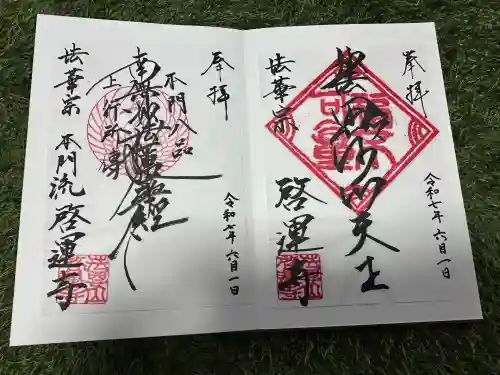 奉拝
黒沙門天王
法華宗
啓運寺
令和七年六月一日
奉拝
本門八品
南無妙法蓮華経
上行所傳
法華宗
本門流
啓運寺
令和七年六月一日